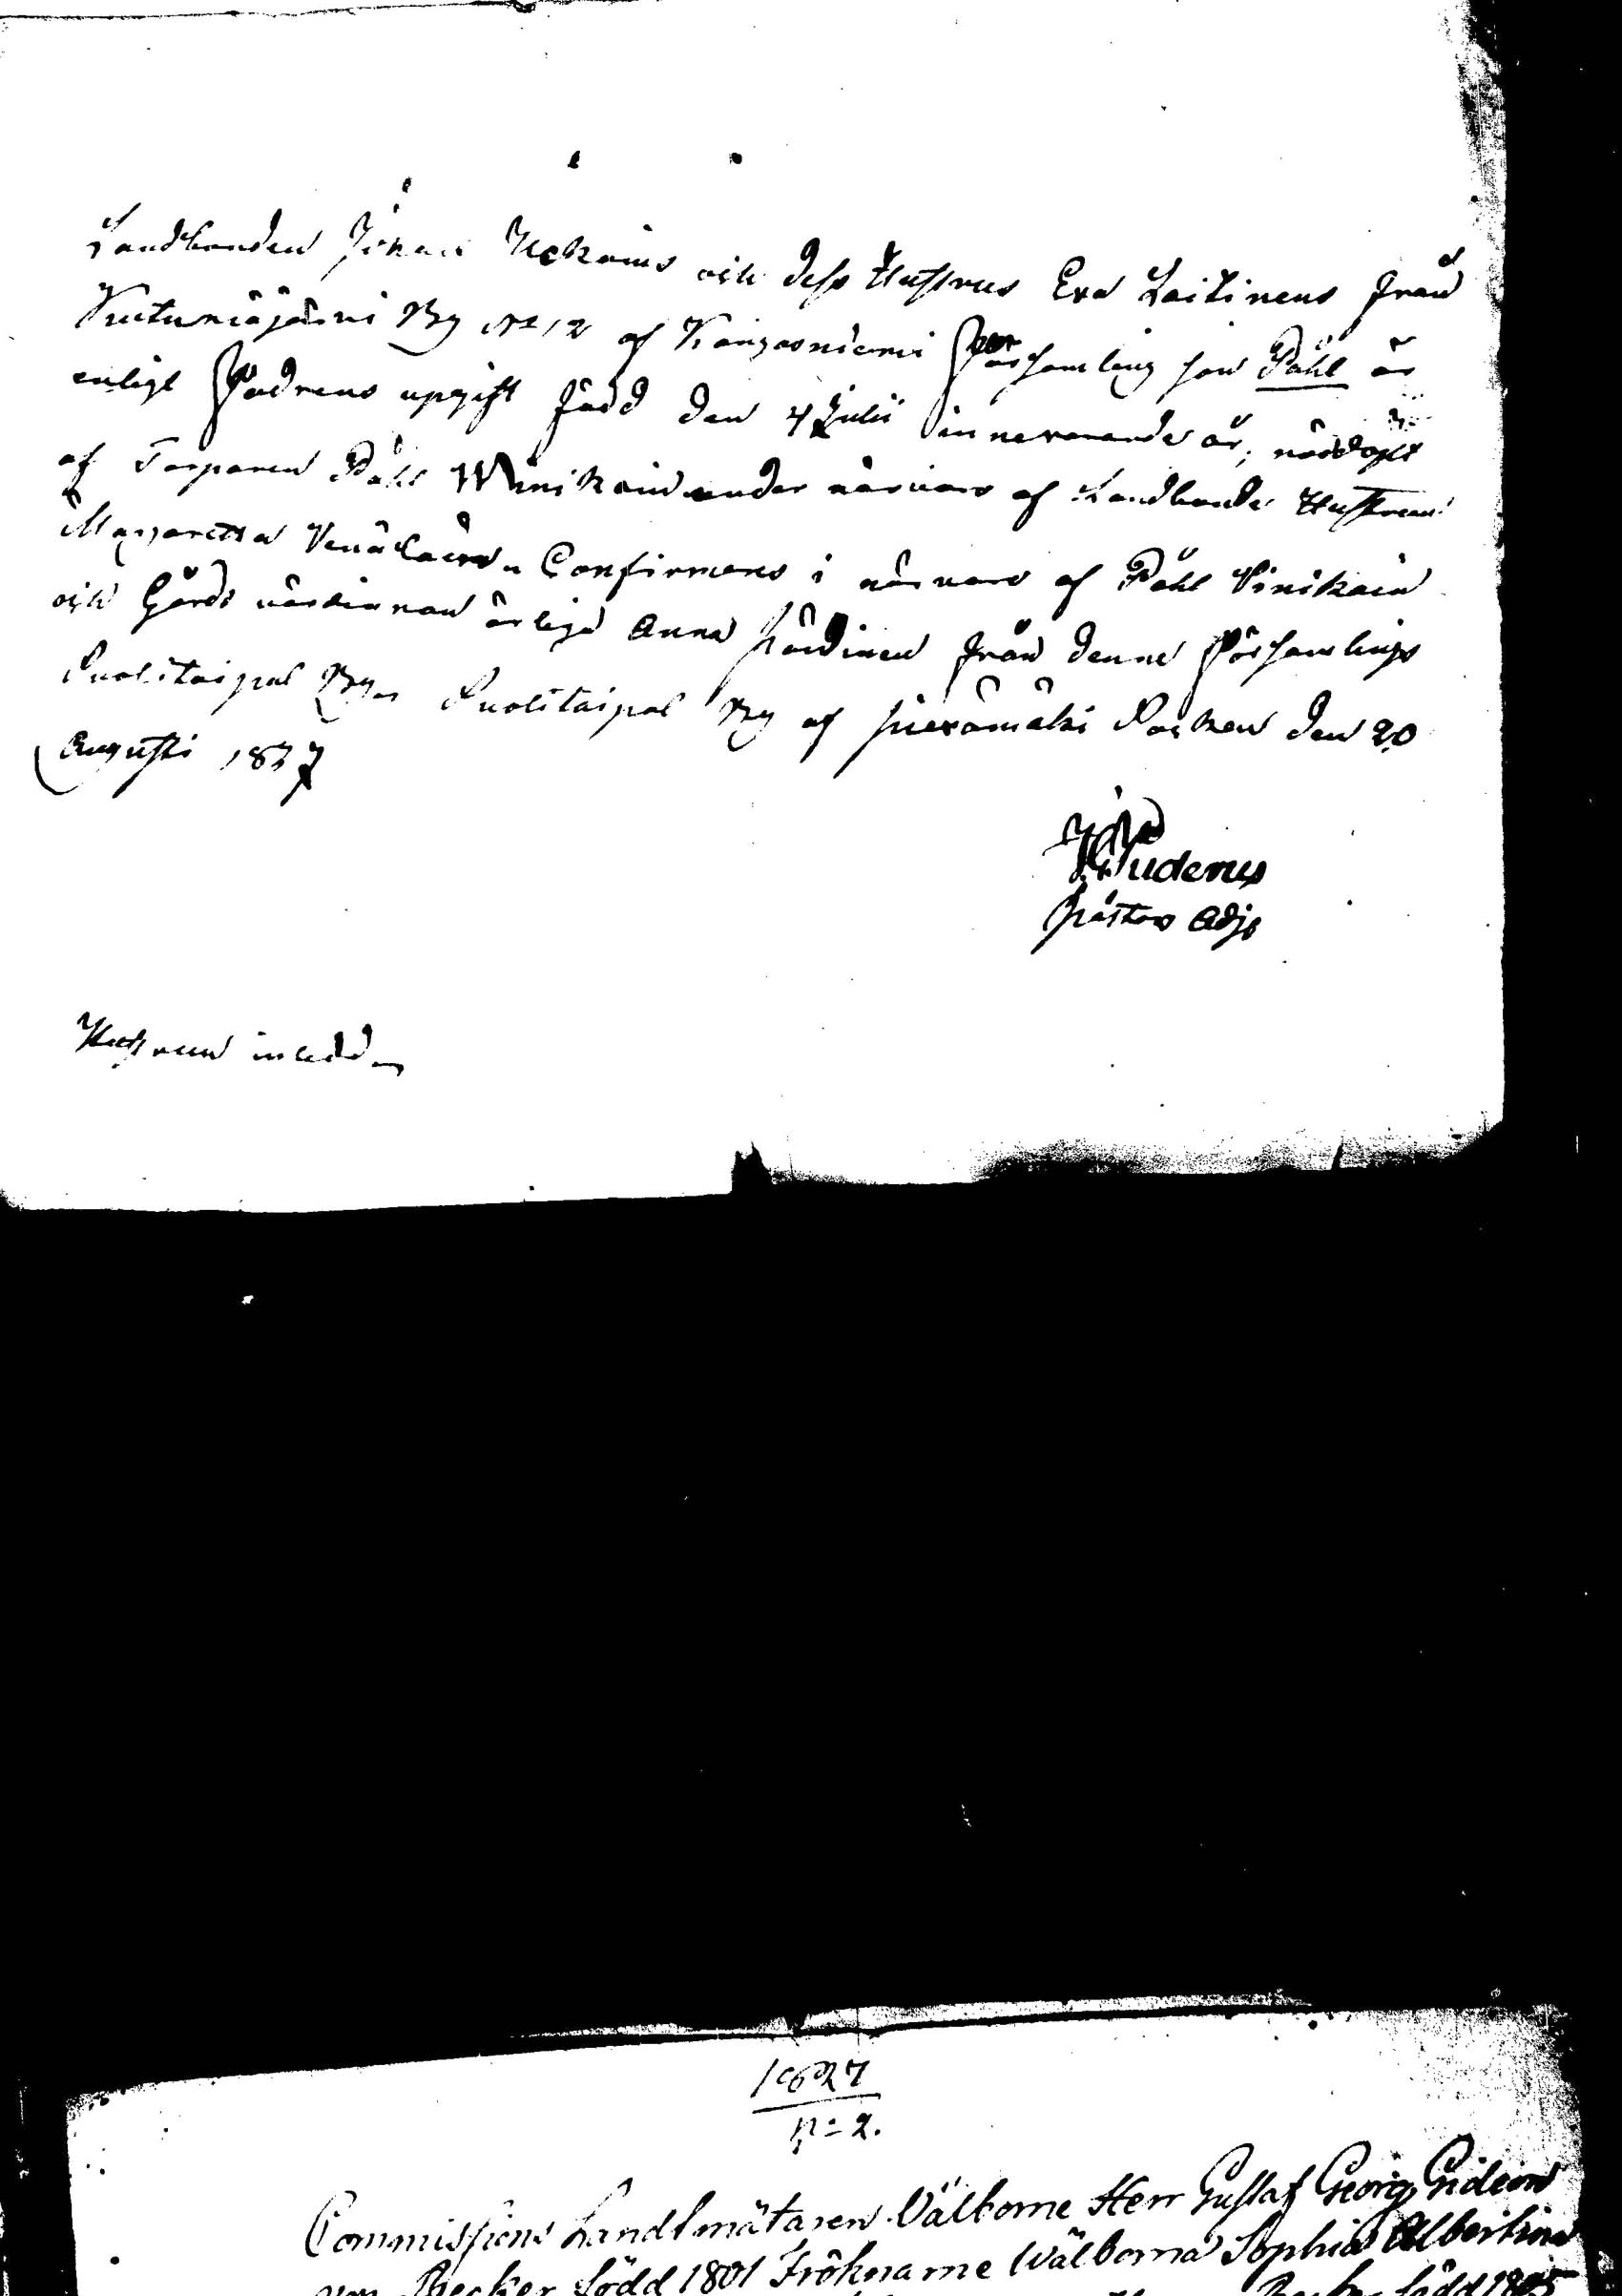 Landbonden Johan Ukkoins och dess Hustrus Eva Laitinens från
Kutuniäjärvi By No 12 af Kangasniemi Församling son Påhl är
enligt Fadrens upgift född den 4 Julii innevarande år, nöddöpt
af Torparen Påhl Winikain under närvaro af Landbonde Hustrun
Margaretta Venäläin. Confirmeras i närvaro af Påhl Vinikain
och Gårds värdinnan ärliga Anna från denne Församlings
Suolitaipal By. Suolitaipal By af Piexämäki Socken den 20
Augusti 1837
Pastors Adj:
Hustrun inledd
1827
n = 2.
Commissions Landtmätaren Välborne Herr Gustaf Georg Gideon
von Becker född 1801 Fröknarne Wälborna Sophia Albertina
Becker född 1805